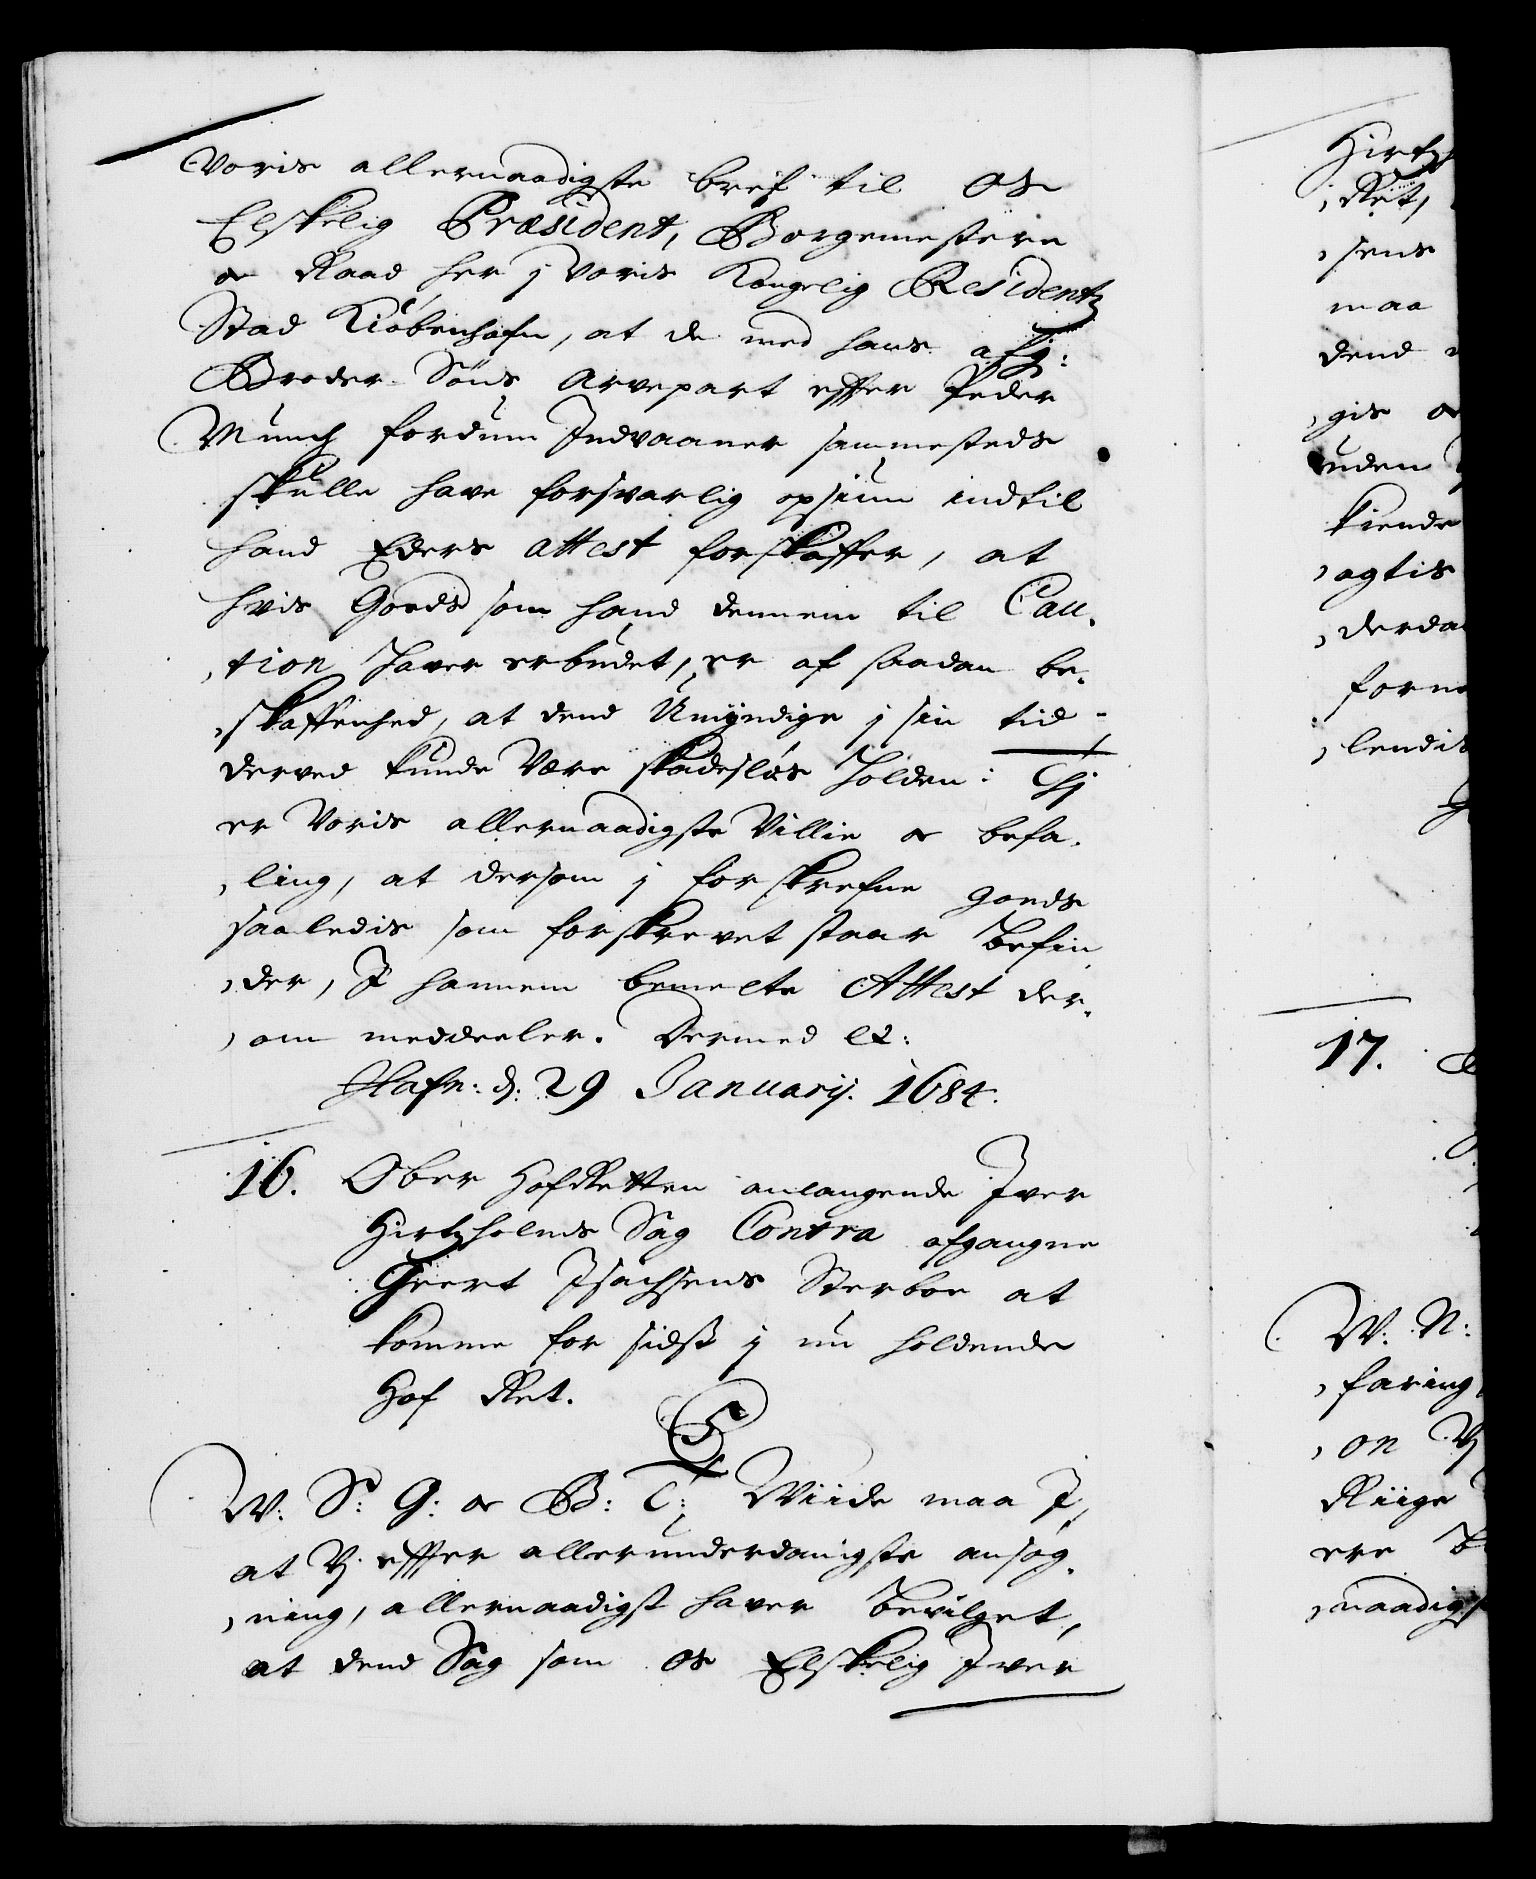 Voris allernaadigste bref til os
Elskelig Præsident, Borgemestere
oc Raad her j Voris Kongelig Residentz
Stad Kiøbenhafn, at de med hans afg:
Broder Søns Arvepart effter Peder
Munch fordum Indvaaner sammesteds
skulle have forsvarlig opsiun indtil
hand Eders attest forskaffer, at
hvis Goeds som hand dennem til Cau,
,tion haver erbudet, er af saadan be,
,skaffenhed, at dend Umÿndige j sin tid
derved kunde Være skadesløs holden: Thj
er Voris allernaadigste Villie oc befa,
,ling, at dersom j forskrefne goeds
saaledis som forskrevet staar befin
,der, I hannem bemelte Attest der,
,om meddeeler. Dermed etc:
Hafn: d: 29 Januarij. 1684.
16. Ober HofRetten anlangende Iver
Hirtzholms Sag Contra afgangne
Geert Isachsens Sterboe at
komme for sidst j nu holdende
Hof Ret.
C5
W: S: G: oc B: T: Wiide maa I,
at Vj effter allerunderdanigste ansøg,
,ning, allernaadigst haver bevilget,
at dend Sag som os Elskelig Iver
Hirtz
,Ret,
,sens
maa
dend
,gis oc
uden
kiende
,agtis
,derda
forne
,lendis
17.
W: N:
,faring
,on Vj
Riige
ere
,naadigst